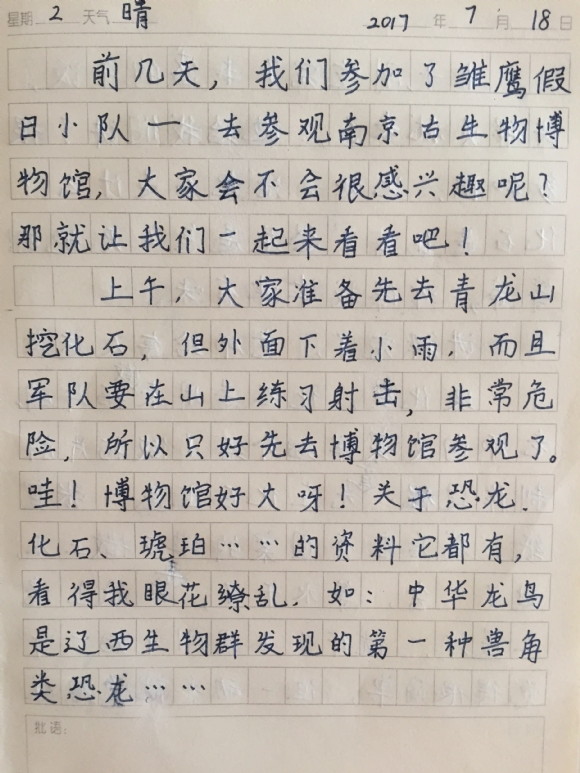 星期 2 天气 晴 2017 年 7 月 18 日
前几天，我们参加了雏鹰假
日小队一去参观南京古生物博
物馆，大家会不会很感兴趣呢？
那就让我们一起来看看吧！
上午，大家准备先去青龙山
挖化石，但外面下着小雨，而且
军队要在山上练习射击，非常危
险，所以只好先去博物馆参观了。
哇！博物馆好大呀！关于恐龙、
化石、琥珀……的资料它都有，
看得我眼花缭乱，如：中华龙鸟
是辽西生物群发现的第一种兽角
类恐龙……
批语：